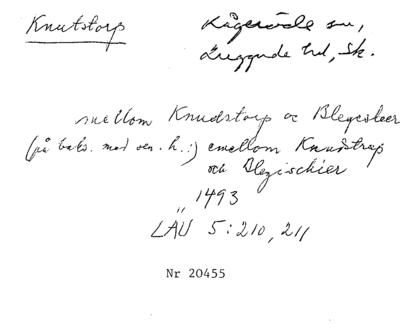 Knutstorp
Kågeröds sn,
Luggude hd, Sk.
mellom Knudstorp oc Blegesker
(på baks. med sen. h.:) emellom Knudstrup
och Blegischier
1493
LÄU 5:210, 211
Nr 20455